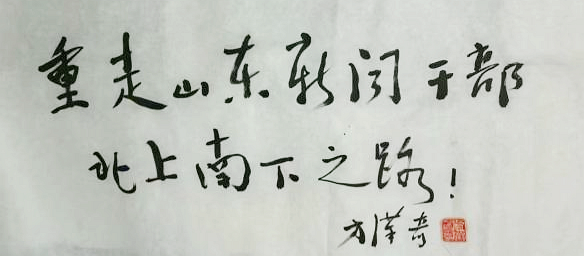 重走山东新闻干部
北上南下之路！
方汉奇